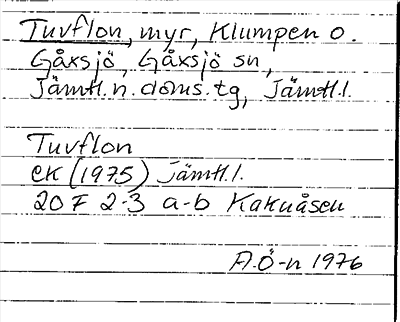 Tuvflon, myr, Klumpen o.
Gåxsjö, Gåxsjö sn,
Jämtl.n.doms.tg, Jämtl.l.
Tuvflon
ek (1975) Jämtl.l.
20 F 2-3 a-b Kakuåsen
A.Ö-n 1976